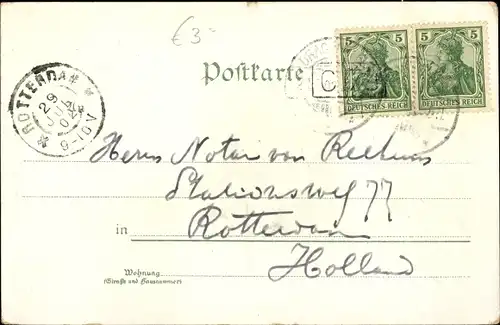 € 3-
5 5
Postkarte
DEUTSCHES REICH DEUTSCHES REICH
ROTTERDAM
29
9-10V
Herrn Notar van
Stationsweg 77
in Rotterdam
Holland
Wohnung
(Straße und Hausnummer)